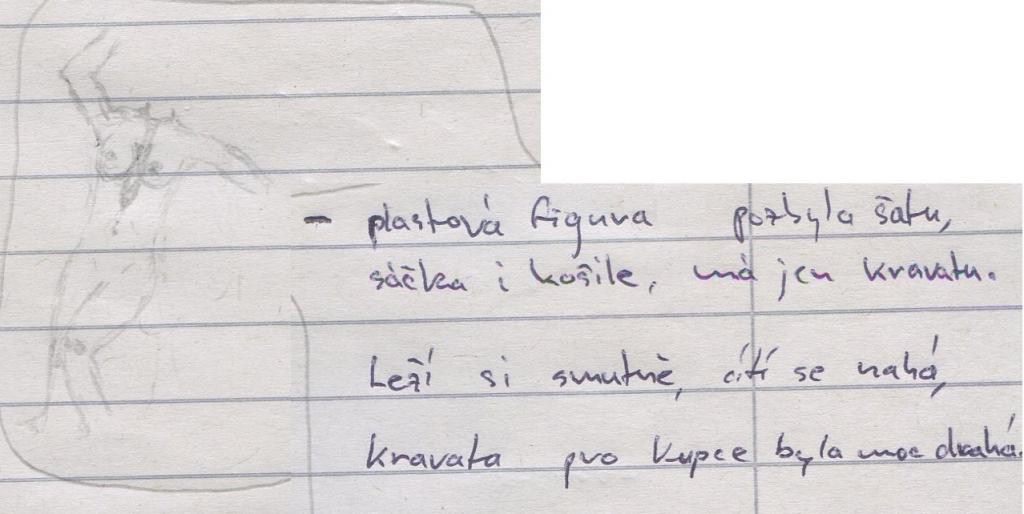 - plastová figura pozbyla šatu,
sáčka i košile, má jen kravatu.
Leží si smutně, cítí se nahá,
kravata pro kupce byla moc drahá.